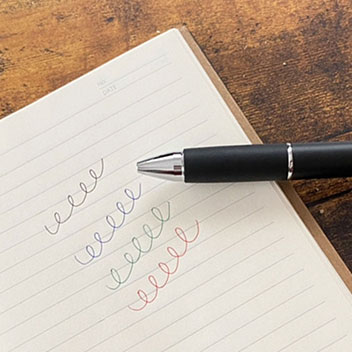 NO.
DATE